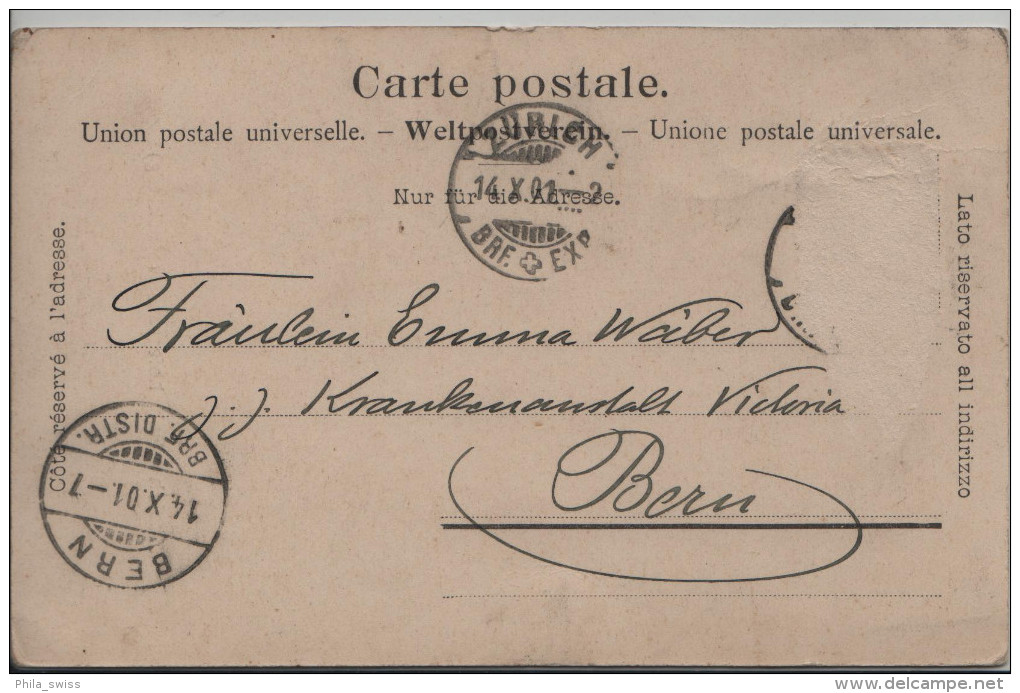 Carte postale.
Union postale universelle. – Weltpostverein. – Unione postale universale.
Nur für die Adresse.
ZÜRICH
14.X.01.–2
BRF. EXP.
Côté réservé à l'adresse.
Lato riservato all indirizzo
Fräulein Emma Wäber
z. Z. Krankenanstalt Victoria
Bern
BRF. DISTR.
14.X.01.–7
BERN
Phila_swiss
delcampe.net